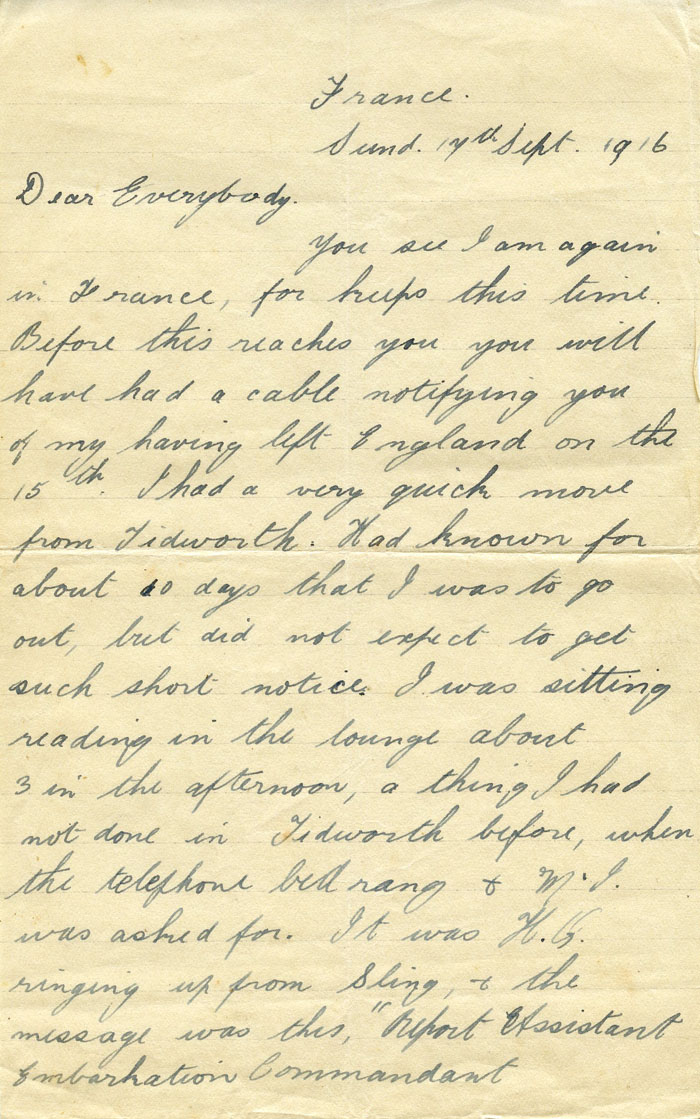 France.
Sund. 17th Sept. 1916
Dear Everybody.
You see I am again
in France, for keeps this time.
Before this reaches you you will
have had a cable notifying you
of my having left England on the
15th. I had a very quick move
from Tidworth. Had known for
about 10 days that I was to go
out, but did not expect to get
such short notice. I was sitting
reading in the lounge about
3 in the afternoon, a thing I had
not done in Tidworth before, when
the telephone bell rang &
was asked for. It was H.Q.
ringing up from Sling, & the
message was this, "Report Assistant
Embarkation Commandant